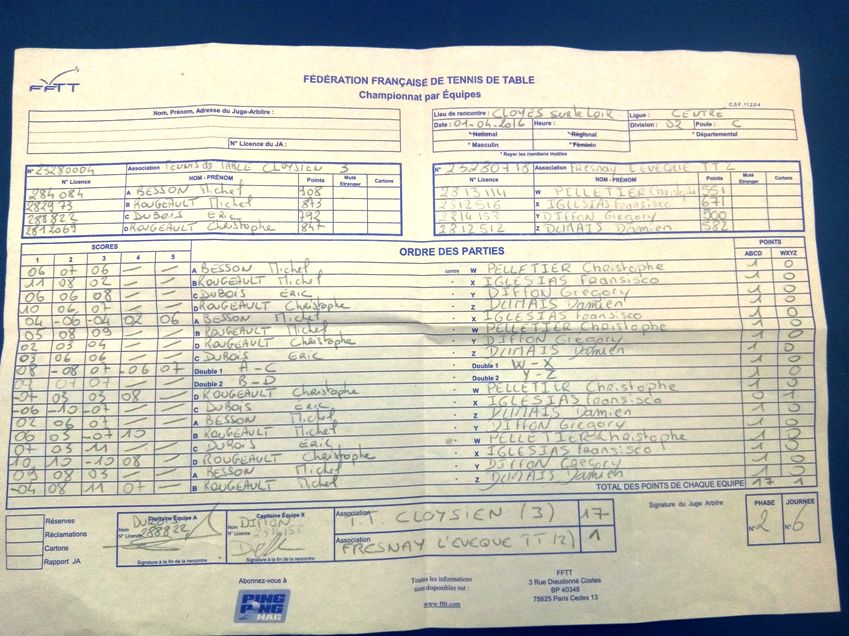 FFTT
FÉDÉRATION FRANÇAISE DE TENNIS DE TABLE
Championnat par Équipes
C.S.F. 11.2.0.4
Nom, Prénom, Adresse du Juge-Arbitre :
N° Licence du JA :
Lieu de rencontre : CLOYES sur le Loir Ligue : CENTRE
Date : 01-04-2016 Heure : Division : D2 Poule : C
*National *Régional *Départemental
*Masculin *Féminin
* Rayer les mentions inutiles
N° 23280004 Association TENNIS de TABLE CLOYSIEN 3
N° Licence NOM - PRÉNOM Points Muté Etranger Cartons
284084 A BESSON Michel 908
282973 B ROUGEAULT Michel 873
288822 C DUBOIS ERIC 792
2812069 D ROUGEAULT Christophe 847
N° 23280718 Association Fresnay L'EVEQUE TT 2
N° Licence NOM - PRÉNOM Points Muté Etranger Cartons
2813114 W PELLETIER Christophe 551
2812516 X IGLESIAS Fransisco 671
2814158 Y DIFFON Gregory 500
2812512 Z DUMAIS Damien 582
SCORES ORDRE DES PARTIES POINTS
1 2 3 4 5 ABCD WXYZ
06 07 06 — — A BESSON Michel contre W PELLETIER Christophe 1 0
11 08 02 — — B ROUGEAULT Michel - X IGLESIAS Fransisco 1 0
06 06 08 — — C DUBOIS ERIC - Y DIFFON Gregory 1 0
10 06 07 — — D ROUGEAULT Christophe - Z DUMAIS Damien 1 0
04 -06 -04 02 06 A BESSON Michel - X IGLESIAS Fransisco 1 0
05 08 09 — — B ROUGEAULT Michel - W PELLETIER Christophe 1 0
02 03 04 — — D ROUGEAULT Christophe - Y DIFFON Gregory 1 0
03 06 06 — — C DUBOIS ERIC - Z DUMAIS Damien 1 0
08 -08 07 -06 07 Double 1 A-C - Double 1 W-X 1 0
09 07 07 — — Double 2 B-D - Double 2 Y-Z 1 0
-07 03 03 08 — D ROUGEAULT Christophe - W PELLETIER Christophe 1 0
-06 -10 -07 — — C DUBOIS ERIC - X IGLESIAS Fransisco 0 1
02 06 07 — — A BESSON Michel - Z DUMAIS Damien 1 0
06 03 -07 10 — B ROUGEAULT Michel - Y DIFFON Gregory 1 0
07 03 11 — — C DUBOIS ERIC - W PELLETIER Christophe 1 0
10 10 -10 08 — D ROUGEAULT Christophe - X IGLESIAS Fransisco 1 0
09 08 03 — — A BESSON Michel - Y DIFFON Gregory 1 0
-04 08 11 07 — B ROUGEAULT Michel - Z DUMAIS Damien 1 0
TOTAL DES POINTS DE CHAQUE EQUIPE 17 1
Réserves
Réclamations
Cartons
Rapport JA
Capitaine Équipe A
Nom DUBOIS
N° Licence 288822
Signature à la fin de la rencontre
Capitaine Équipe X
Nom DIFFON
N° Licence 2814158
Signature à la fin de la rencontre
Association T.T. CLOYSIEN (3) 17
Association FRESNAY L'EVEQUE TT (2) 1
Signature du Juge Arbitre
PHASE JOURNÉE
N° 2 N° 6
Abonnez-vous à
PING PONG MAG
Toutes les informations
sont disponibles sur :
www.fftt.com
FFTT
3 Rue Dieudonné Costes
BP 40348
75625 Paris Cedex 13